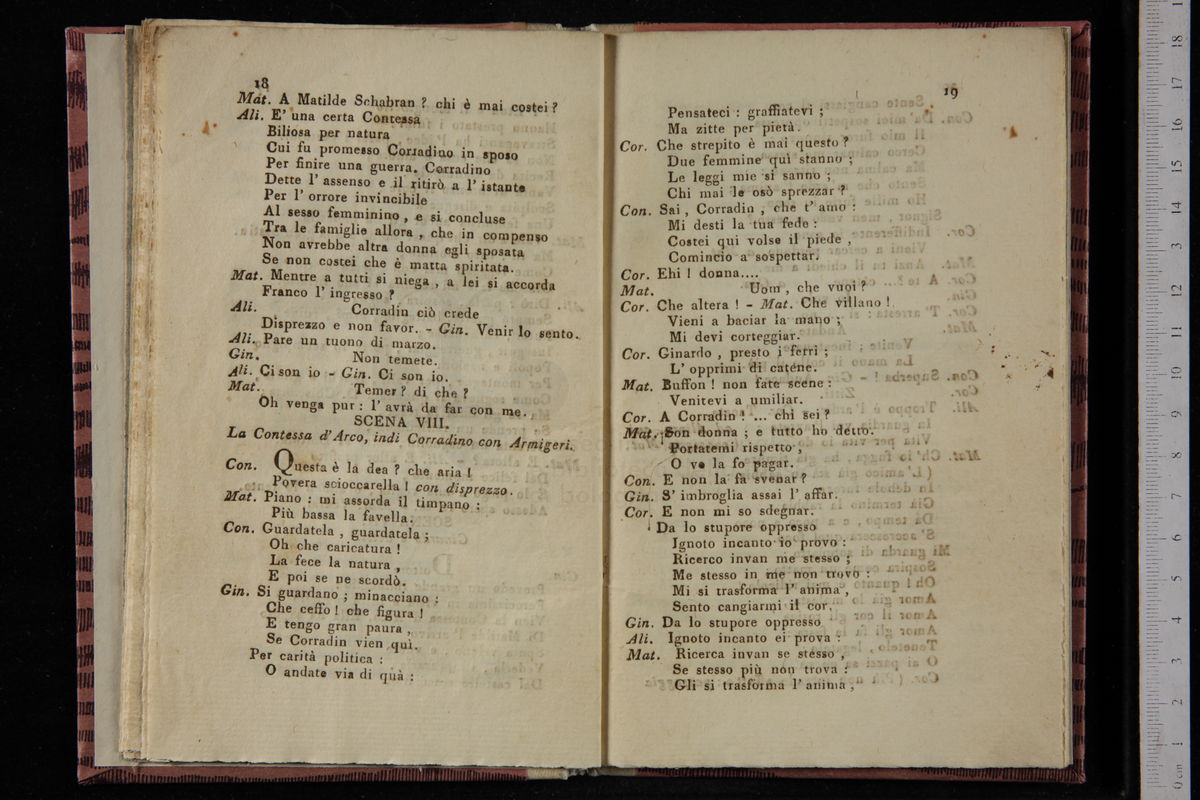 18
Mat. A Matilde Schabran ? chi è mai costei ?
Ali. E' una certa Contessa
Biliosa per natura
Cui fu promesso Corradino in sposo
Per finire una guerra. Corradino
Dette l' assenso e il ritirò a l' istante
Per l' orrore invincibile
Al sesso femminino, e si concluse
Tra le famiglie allora, che in compenso
Non avrebbe altra donna egli sposata
Se non costei che è matta spiritata.
Mat. Mentre a tutti si niega, a lei si accorda
Franco l' ingresso ?
Ali. Corradin ciò crede
Disprezzo e non favor. - Gin. Venir lo sento.
Ali. Pare un tuono di marzo.
Gin. Non temete.
Ali. Ci son io - Gin. Ci son io.
Mat. Temer ? di che ?
Oh venga pur : l' avrà da far con me.
SCENA VIII.
La Contessa d'Arco, indi Corradino con Armigeri.
Con. Questa è la dea ? che aria !
Povera scioccarella ! con disprezzo.
Mat. Piano : mi assorda il timpano :
Più bassa la favella.
Con. Guardatela, guardatela ;
Oh che caricatura !
La fece la natura,
E poi se ne scordò.
Gin. Si guardano ; minacciano :
Che ceffo ! che figura !
E tengo gran paura,
Se Corradin vien quì.
Per carità politica :
O andate via di quà :
19
Pensateci : graffiatevi ;
Ma zitte per pietà.
Cor. Che strepito è mai questo ?
Due femmine quì stanno ;
Le leggi mie si sanno ;
Chi mai le osò sprezzar ?
Con. Sai, Corradin, che t' amo :
Mi desti la tua fede :
Costei qui volse il piede,
Comincio a sospettar.
Cor. Ehi ! donna....
Mat. Uom, che vuoi ?
Cor. Che altera ! - Mat. Che villano !
Vieni a baciar la mano ;
Mi devi corteggiar.
Cor. Ginardo, presto i ferri ;
L' opprimi di catene.
Mat. Buffon ! non fate scene :
Venitevi a umiliar.
Cor. A Corradin ! ... chi sei ?
Mat. Son donna ; e tutto ho detto.
Portatemi rispetto,
O ve la fo pagar.
Con. E non la fa svenar ?
Gin. S' imbroglia assai l' affar.
Cor. E non mi so sdegnar.
Da lo stupore oppresso
Ignoto incanto io provo :
Ricerco invan me stesso ;
Me stesso in me non trovo :
Mi si trasforma l' anima,
Sento cangiarmi il cor.
Gin. Da lo stupore oppresso
Ali. Ignoto incanto ei prova :
Mat. Ricerca invan se stesso,
Se stesso più non trova :
Gli si trasforma l' anima,